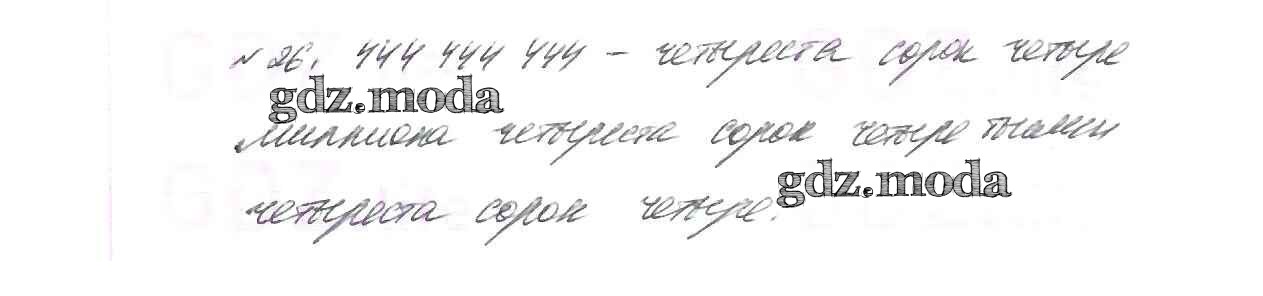 №26. 444 444 444 – четыреста сорок четыре
gdz.moda
миллиона четыреста сорок четыре тысячи
gdz.moda
четыреста сорок четыре.